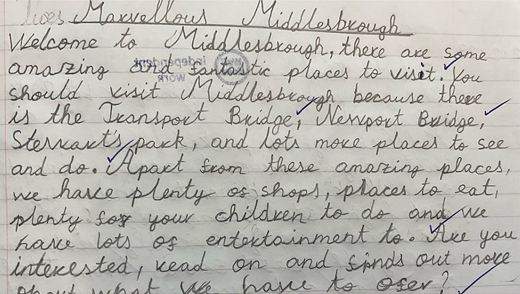 Marvellous Middlesbrough
Welcome to Middlesbrough, there are some
amazing and fantastic places to visit. You
should visit Middlesbrough because there
is the Transport Bridge, Newport Bridge,
Stewart's park, and lots more places to see
and do. Apart from these amazing places,
we have plenty of shops, places to eat,
plenty for your children to do and we
have lots of entertainment to. Are you
interested, read on and finds out more
about what we have to offer?
independent
work